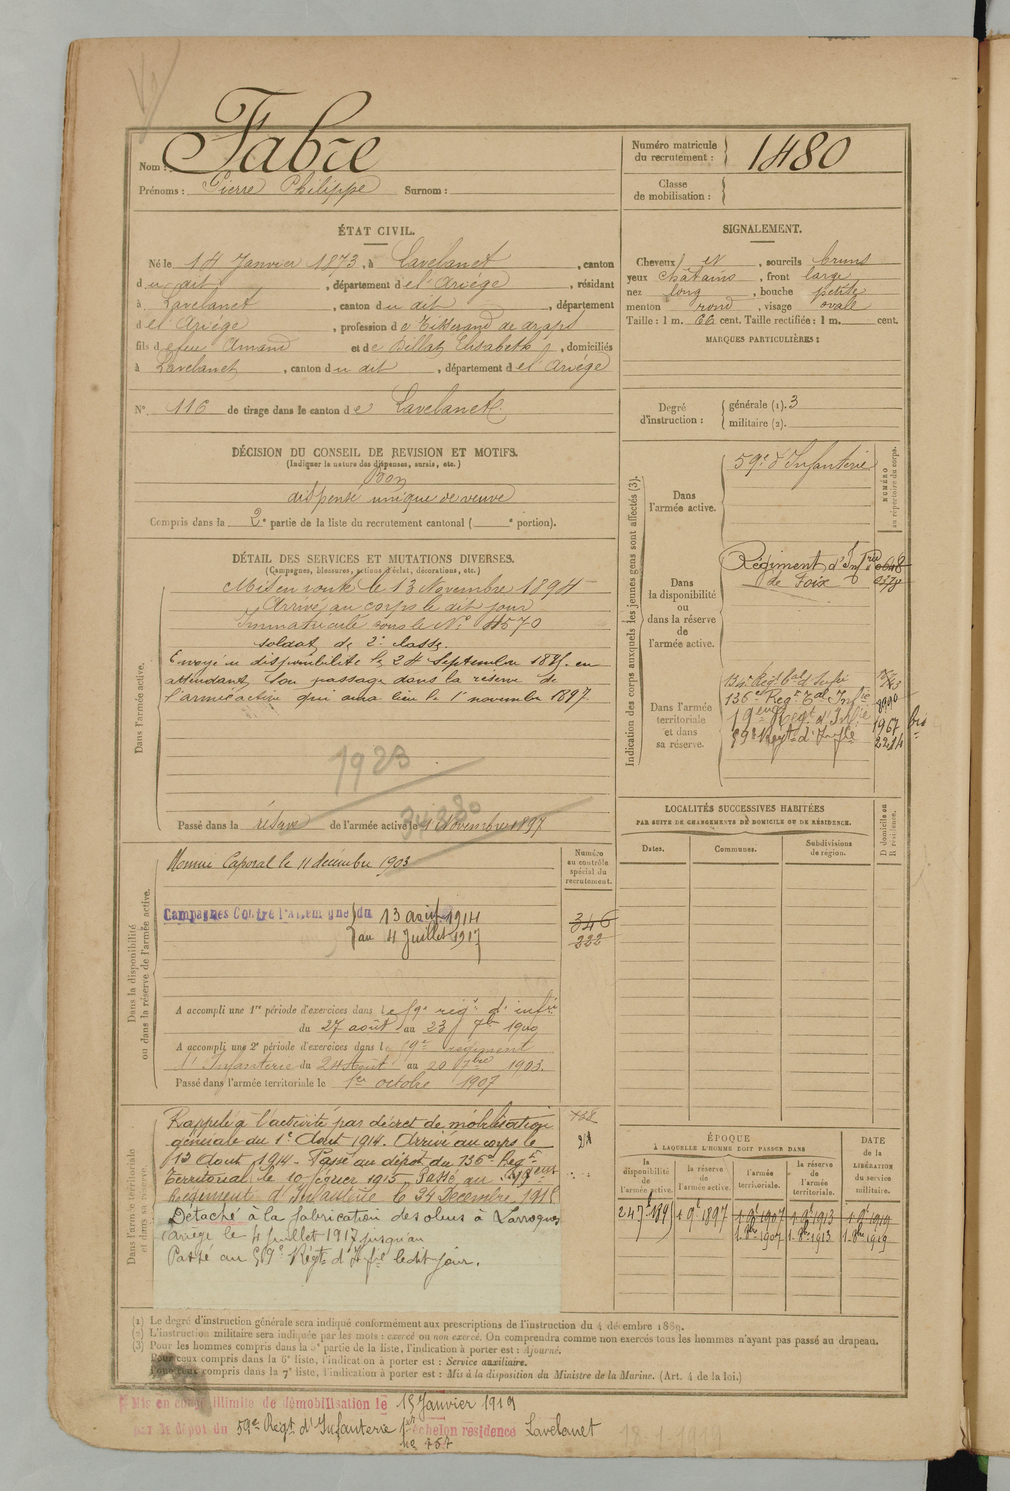 Nom : Fabre
Prénoms : Pierre Philippe Surnom :
Numéro matricule du recrutement : 1480
Classe de mobilisation :
ÉTAT CIVIL.
Né le 14 Janvier 1873, à Lavelanet, canton
du dit, département de l'Ariége, résidant
à Lavelanet, canton du dit, département
de l'Ariége, profession de Tisserand de draps
fils de feu Amand et de Billat Elisabeth, domiciliés
à Lavelanet, canton du dit, département de l'Ariége
N° 116 de tirage dans le canton de Lavelanet.
SIGNALEMENT.
Cheveux et, sourcils bruns
yeux chatains, front large
nez long, bouche petite
menton rond, visage ovale
Taille : 1 m. 66 cent. Taille rectifiée : 1 m. cent.
MARQUES PARTICULIÈRES :
Degré d'instruction : générale (1). 3
militaire (2).
DÉCISION DU CONSEIL DE REVISION ET MOTIFS.
(Indiquer la nature des dispenses, sursis, etc.)
Bon
dispensé unique de veuve
Compris dans la 2e partie de la liste du recrutement cantonal ( e portion).
DÉTAIL DES SERVICES ET MUTATIONS DIVERSES.
(Campagnes, blessures, actions d'éclat, décorations, etc.)
Dans l'armée active.
Mis en route le 13 Novembre 1894
Arrivé au corps le dit jour
Immatriculé sous le N° 4570
soldat de 2e classe.
Envoyé en disponibilité le 24 Septembre 1895. en
attendant son passage dans la réserve de
l'armée active qui aura lieu le 1er novembre 1897
1923
Passé dans la réserve de l'armée active le 1 Novembre 1897
Indication des corps auxquels les jeunes gens sont affectés (3).
NUMÉRO au répertoire du corps.
Dans l'armée active.
59e d'Infanterie
Dans la disponibilité ou dans la réserve de l'armée active.
Régiment d'Infrie
de Foix
Dans l'armée territoriale et dans sa réserve.
136e Regt Tal Infie
8990
Regt d'Infie
1967 bis
59e Regt d'Infie
2214
LOCALITÉS SUCCESSIVES HABITÉES
PAR SUITE DE CHANGEMENTS DE DOMICILE OU DE RÉSIDENCE.
Dates.
Communes.
Subdivisions de région.
D domicile ou R résidence.
Dans la disponibilité ou dans la réserve de l'armée active.
Numéro au contrôle spécial du recrutement.
Nommé Caporal le 11 décembre 1903
Campagnes Contre l'Allemagne du 13 août 1914
au 4 Juillet 1917
346
222
A accompli une 1re période d'exercices dans le 59e régt d'infie
du 27 août au 23 7bre 1900
A accompli une 2e période d'exercices dans le 59e régiment
d'Infanterie du 24 Août au 20 7bre 1903.
Passé dans l'armée territoriale le 1er octobre 1907
Dans l'armée territoriale et dans sa réserve.
Rappelé à l'activité par décret de mobilisation
générale du 1er Août 1914. Arrivé au corps le
13 Août 1914. Passé au dépôt du 136e Regt
Territorial le 10 février 1915. Passé au
Régiment d'Infanterie le 24 Décembre
Détaché à la fabrication des obus à Larroque
Ariège le 4 juillet 1917 jusqu'au
Passé au 59e Régt d'Infie le dit jour.
ÉPOQUE
À LAQUELLE L'HOMME DOIT PASSER DANS
la disponibilité de l'armée active.
la réserve de l'armée active.
l'armée territoriale.
la réserve de l'armée territoriale.
DATE de la LIBÉRATION du service militaire.
1 9e 1897
1 9e 1907
1 9e 1913
1 9e 1919
1. 8bre 1907
1. 8bre 1913
1. 8bre 1919
(1) Le degré d'instruction générale sera indiqué conformément aux prescriptions de l'instruction du 4 décembre 1889.
(2) L'instruction militaire sera indiquée par les mots : exercé ou non exercé. On comprendra comme non exercés tous les hommes n'ayant pas passé au drapeau.
(3) Pour les hommes compris dans la 5e partie de la liste, l'indication à porter est : Ajourné.
Pour ceux compris dans la 6e liste, l'indication à porter est : Service auxiliaire.
Pour ceux compris dans la 7e liste, l'indication à porter est : Mis à la disposition du Ministre de la Marine. (Art. 4 de la loi.)
Mis en congé illimité de démobilisation le 15 Janvier 1919
par le dépôt du 59e Regt d'Infanterie 1er échelon résidence Lavelanet
n° 757
18-1-1919